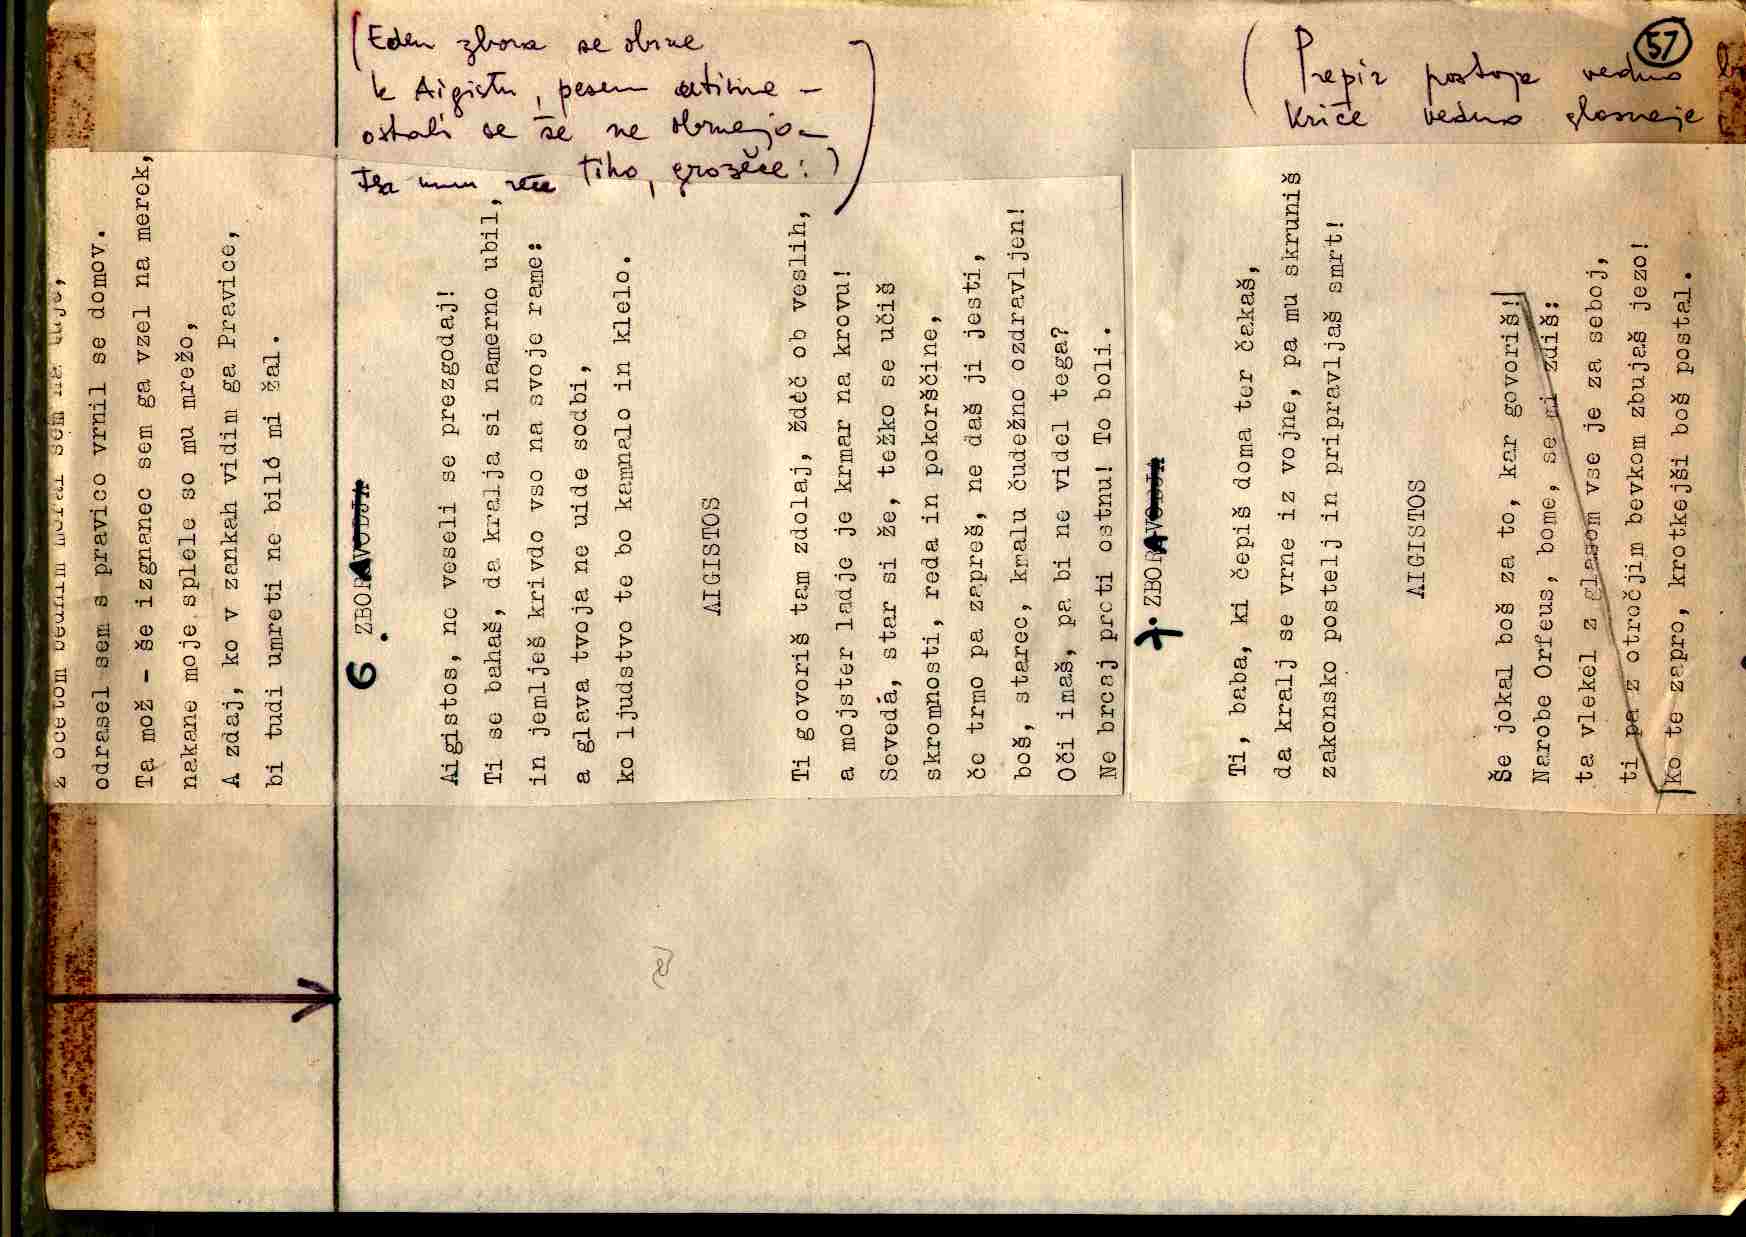 57
(Eden zbora se obrne
k Aigistu, pesem utihne -
ostali se še ne obrnejo -
tiho, grozeče:)
(Prepir postaja vedno
kriče vedno glasneje
z očetom bednim moral sem na tuje,
odrasel sem s pravico vrnil se domov.
Ta mož - še izgnanec sem ga vzel na merek,
nakane moje splele so mu mrežo,
A zdaj, ko v zankah vidim ga Pravice,
bi tudi umreti ne bilo mi žal.
6. ZBORAVODJA
Aigistos, no veseli se prezgodaj!
Ti se bahaš, da kralja si namerno ubil,
in jemlješ krivdo vso na svoje rame:
a glava tvoja ne uide sodbi,
ko ljudstvo te bo kamnalo in klelo.
AIGISTOS
Ti govoriš tam zdolaj, ždeč ob veslih,
a mojster ladje je krmar na krovu!
Sevedá, star si že, težko se učiš
skromnosti, reda in pokorščine,
če trmo pa zapreš, ne daš ji jesti,
boš, starec, kmalu čudežno ozdravljen!
Oči imaš, pa bi ne videl tega?
Ne brcaj proti ostnu! To boli.
7. ZBORAVODJA
Ti, baba, ki čepiš doma ter čakaš,
da kralj se vrne iz vojne, pa mu skruniš
zakonsko postelj in pripravljaš smrt!
AIGISTOS
Še jokal boš za to, kar govoriš!
Narobe Orfeus, bome, se mi zdiš:
ta vlekel z glasom vse je za seboj,
ti pa z otročjim bevkom zbujaš jezo!
Ko te zapro, krotkejši boš postal.